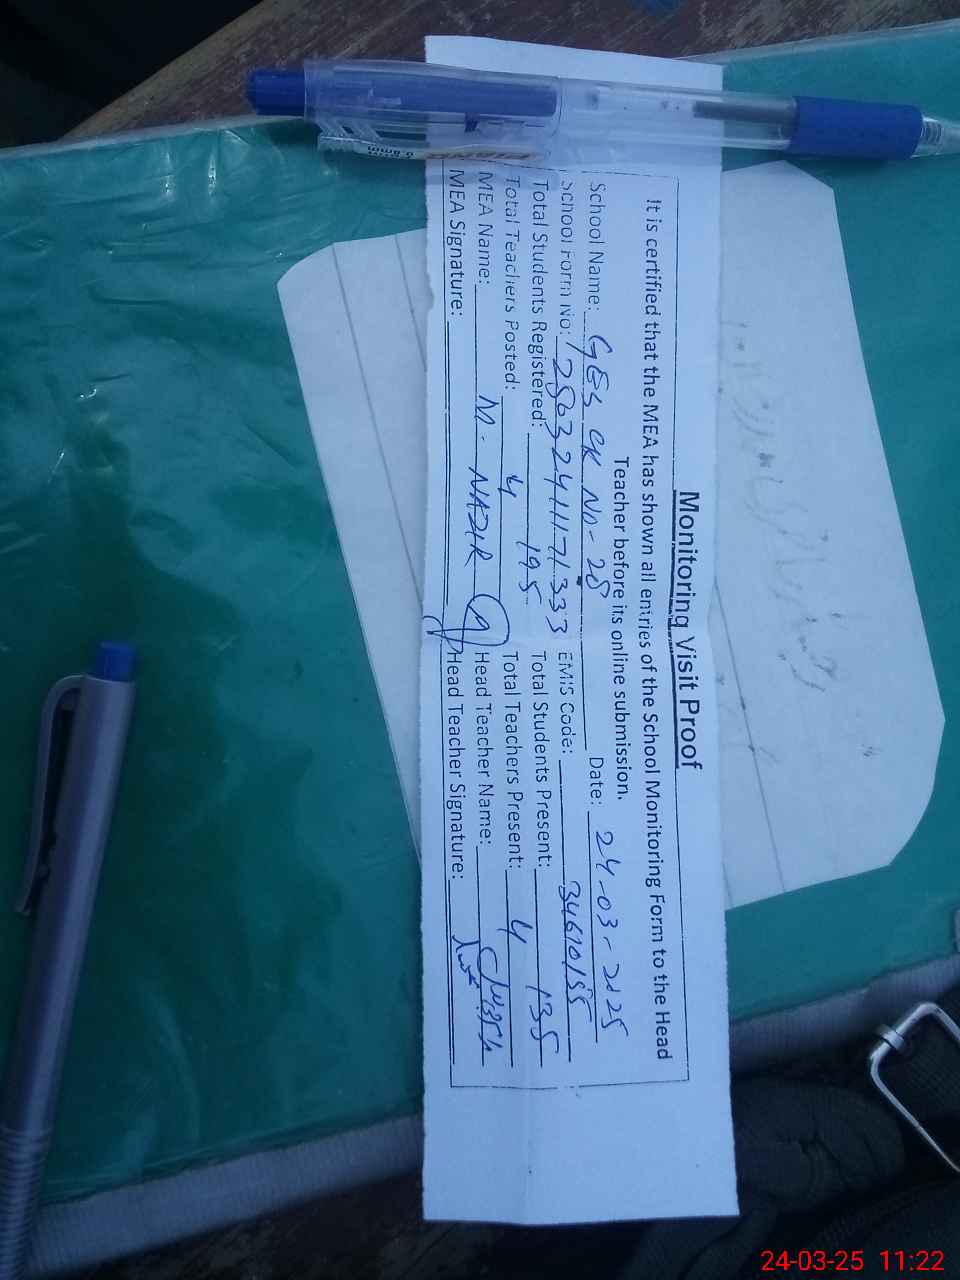 Monitoring Visit Proof
It is certified that the MEA has shown all entries of the School Monitoring Form to the Head
Teacher before its online submission.
School Name: GES CK No-28 Date: 24-03-2025
School Form No: 2503241117 1333 EMIS Code: 34610155
Total Students Registered: 195 Total Students Present: 135
Total Teachers Posted: 4 Total Teachers Present: 4
MEA Name: M. NAZIR Head Teacher Name:
MEA Signature: Head Teacher Signature:
PIANO
0.8mm
24-03-25 11:22